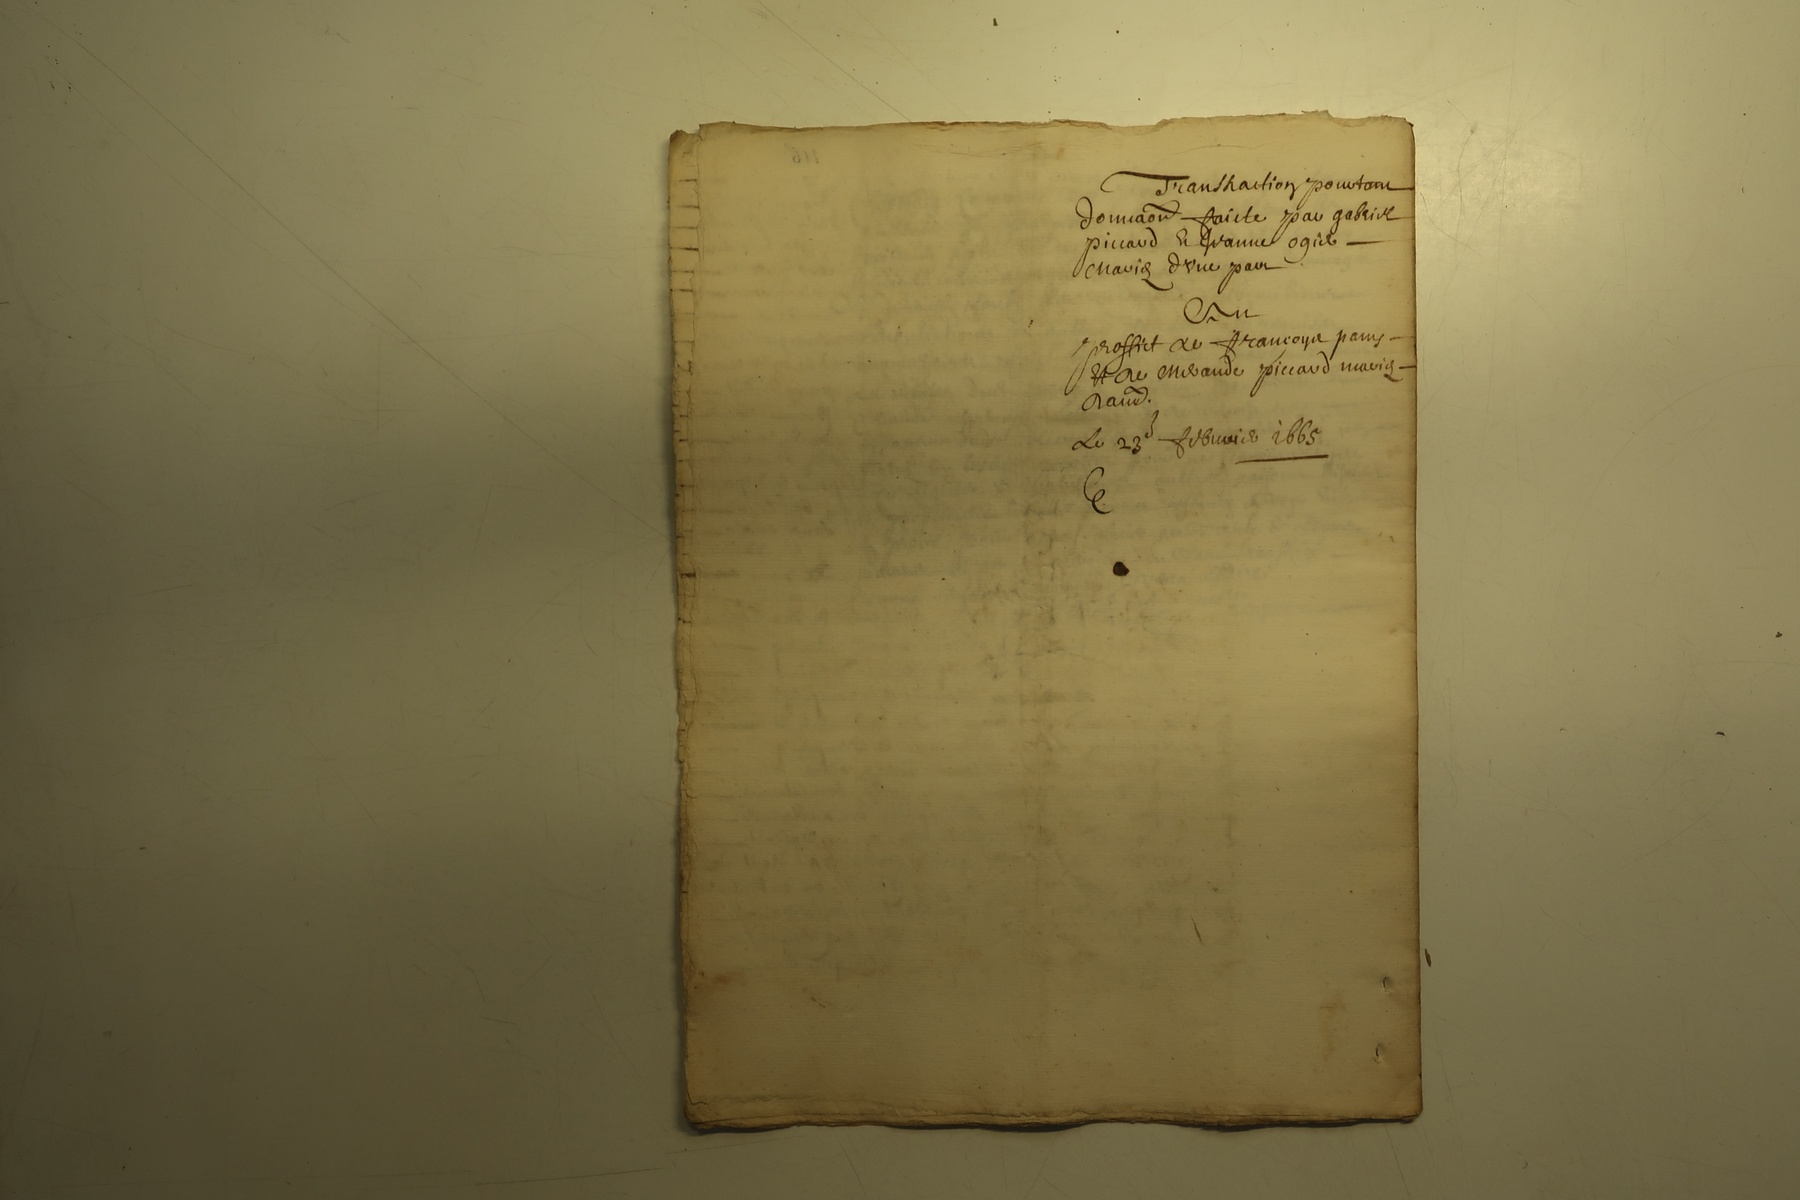 Transhaction pourtan
donnaon faicte par gabriel
piccard & Jeanne ogier
mariez d'vne part
Au
proffict de francoys
Et de piccard mariez
daud.
Le 23e febvrier 1665